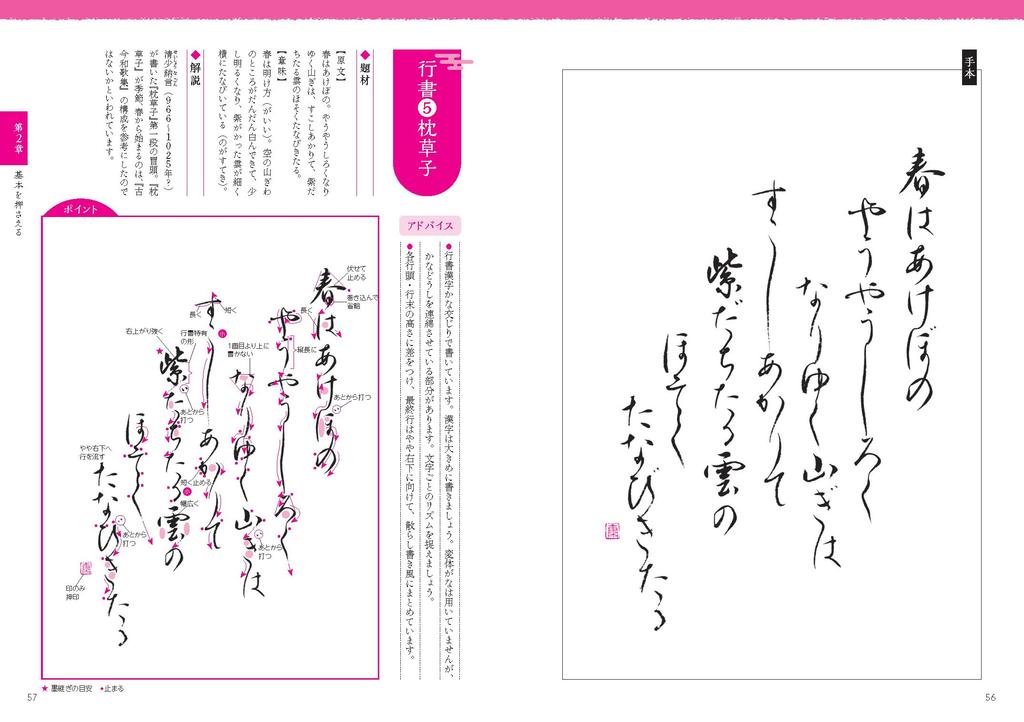 手本
春はあけぼの
やうやうしろく
なりゆく山ぎは
すこしあかりて
紫だちたる雲の
ほそく
たなびきたる
56
行書❺枕草子
◆題材
【原文】
春はあけぼの。やうやうしろくなり
ゆく山ぎは、すこしあかりて、紫だ
ちたる雲のほそくたなびきたる。
【意味】
春は明け方（がいい）。空の山ぎわ
のところがだんだん白んできて、少
し明るくなり、紫がかった雲が細く
横にたなびいている（のがすてき）。
◆解説
清少納言（966〜1025年？）
せいしょうなごん
が書いた『枕草子』第一段の冒頭。『枕
草子』が季節、春から始まるのは、『古
今和歌集』の構成を参考にしたので
はないかといわれています。
アドバイス
●行書漢字かな交じりで書いています。漢字は大きめに書きましょう。変体がなは用いていませんが、
かなどうしを連綿させている部分があります。文字ごとのリズムを捉えましょう。
●各行頭・行末の高さに差をつけ、最終行はやや右下に向けて、散らし書き風にまとめています。
ポイント
春はあけぼの
やうやうしろく
なりゆく山ぎは
すこしあかりて
紫だちたる雲の
ほそく
たなびきたる
伏せて
止める
巻き込んで
省略
長く
縦長に
あとから打つ
短く
長く
小
1画目より上に
書かない
行書特有
の形
右上がり強く
あとから
打つ
短く止める
小
幅広く
あとから
打つ
やや右下へ
行を流す
あとから
打つ
印のみ
押印
★ 墨継ぎの目安 •止まる
第2章
基本を押さえる
57